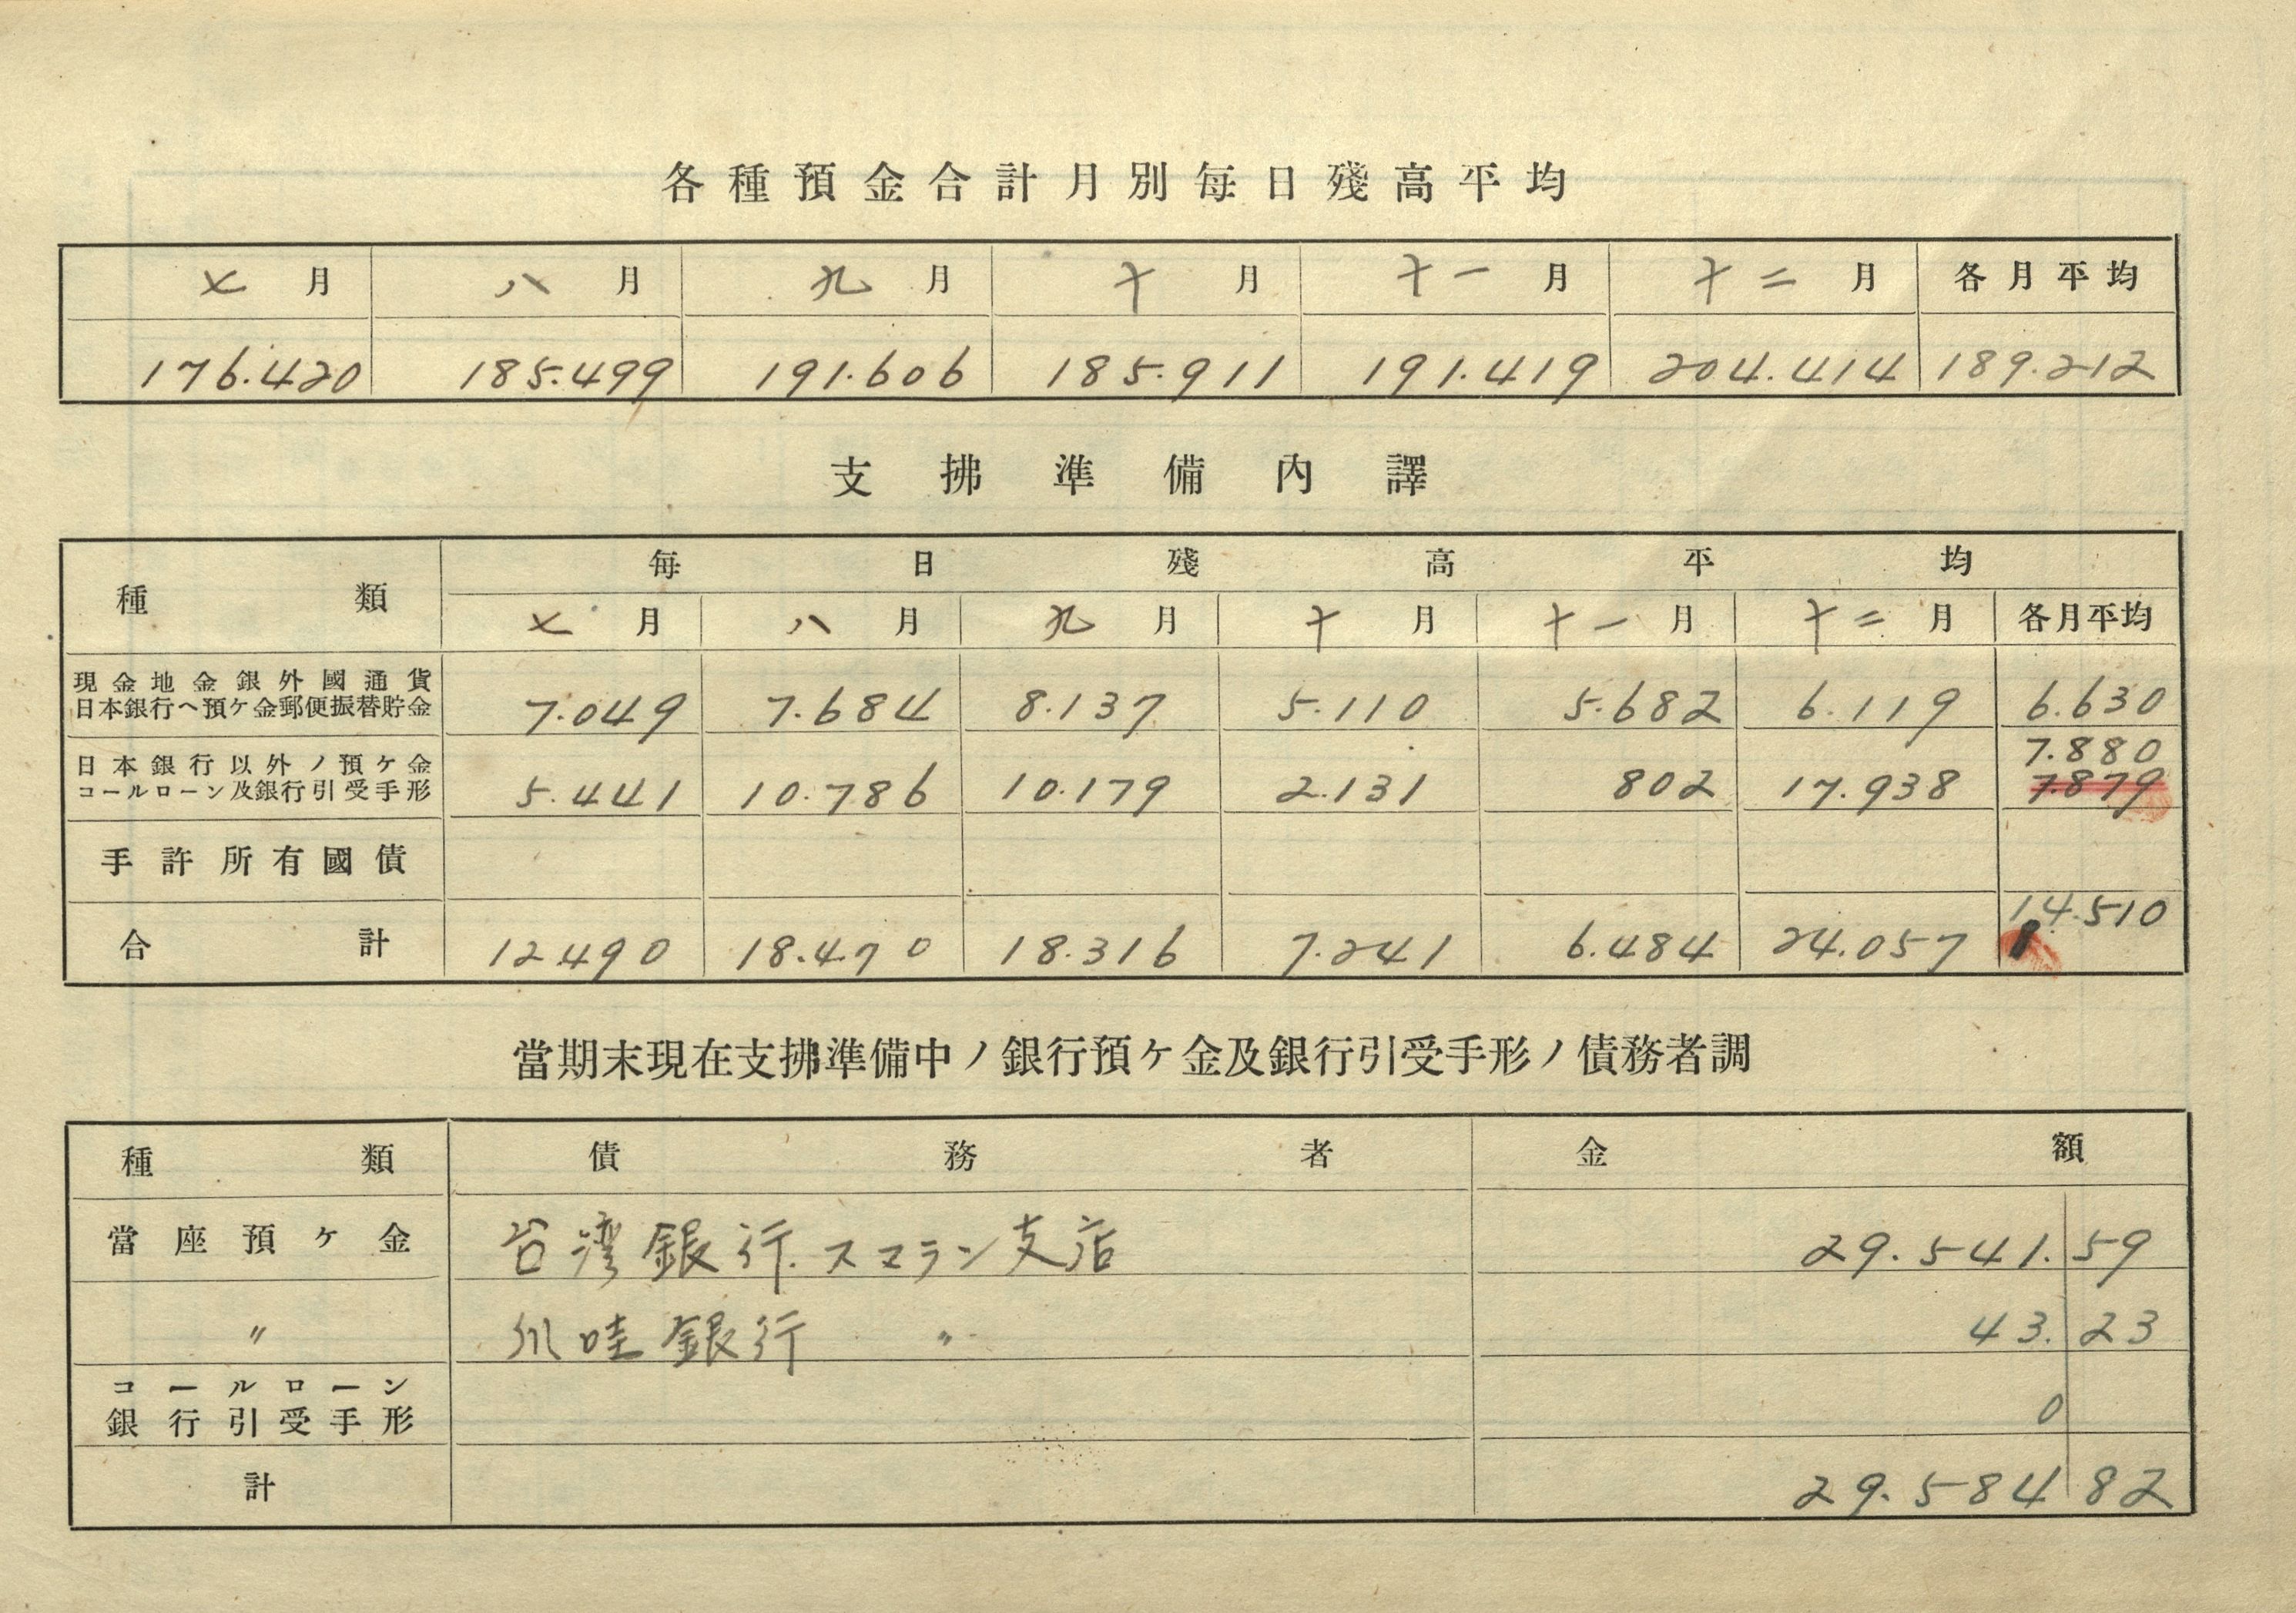 各種預金合計月別每日殘高平均
七月 八月 九月 十月 十一月 十二月 各月平均
176.420 185.499 191.606 185.911 191.419 204.414 189.212
支拂準備內譯
種類 每日殘高平均
七月 八月 九月 十月 十一月 十二月 各月平均
現金地金銀外國通貨
日本銀行ヘ預ケ金郵便振替貯金 7.049 7.684 8.137 5.110 5.682 6.119 6.630
7.880
日本銀行以外ノ預ケ金
コールローン及銀行引受手形 5.441 10.786 10.179 2.131 802 17.938 7.879
手許所有國債
14.510
合計 12490 18.470 18.316 7.241 6.484 24.057
當期末現在支拂準備中ノ銀行預ケ金及銀行引受手形ノ債務者調
種類 債務者 金額
當座預ケ金 台湾銀行.スマラン支店 29.541.59
〃 爪哇銀行 〃 43.23
コールローン
銀行引受手形 0
計 29.584 82